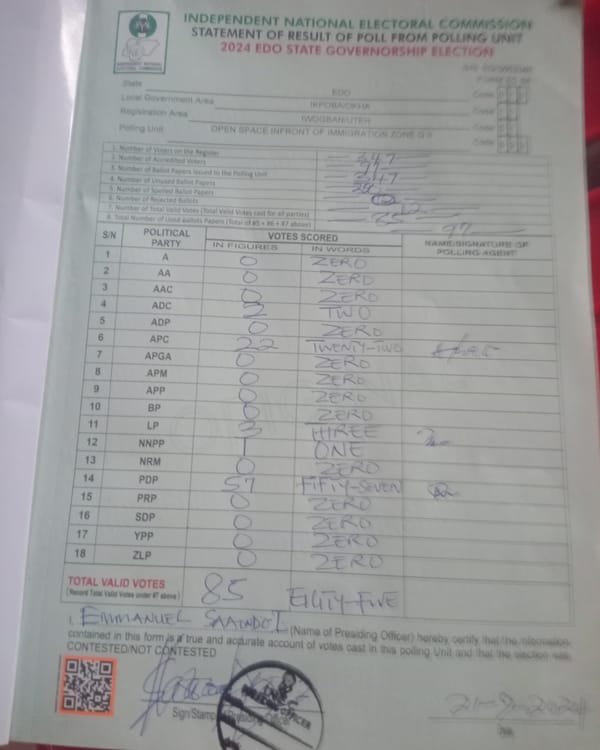 INDEPENDENT NATIONAL ELECTORAL COMMISSION
STATEMENT OF RESULT OF POLL FROM POLLING UNIT
2024 EDO STATE GOVERNORSHIP ELECTION
State EDO Code
Local Government Area IKPOBA/OKHA Code
Registration Area IWOGBAN/UTEH Code
Polling Unit OPEN SPACE INFRONT OF IMMIGRATION ZONE Code
1. Number of Voters on the Register 347
2. Number of Accredited Voters
3. Number of Ballot Papers Issued to the Polling Unit 347
4. Number of Unused Ballot Papers
5. Number of Spoiled Ballot Papers
6. Number of Rejected Ballots
7. Number of Total Valid Votes (Total Valid Votes cast for all parties) 85
8. Total Number of Used Ballots Papers (Total of #5 + #6 + #7 above) 97
S/N POLITICAL PARTY VOTES SCORED NAME/SIGNATURE OF POLLING AGENT
IN FIGURES IN WORDS
1 A 0 ZERO
2 AA 0 ZERO
3 AAC 0 ZERO
4 ADC 2 TWO
5 ADP 0 ZERO
6 APC 22 TWENTY-TWO
7 APGA 0 ZERO
8 APM 0 ZERO
9 APP 0 ZERO
10 BP 0 ZERO
11 LP 3 THREE
12 NNPP 1 ONE
13 NRM 0 ZERO
14 PDP 57 FIFTY-SEVEN
15 PRP 0 ZERO
16 SDP 0 ZERO
17 YPP 0 ZERO
18 ZLP 0 ZERO
TOTAL VALID VOTES 85 EIGHTY-FIVE
(Record Total Valid Votes under #7 above)
I, EMMANUEL (Name of Presiding Officer) hereby certify that the information
contained in this form is a true and accurate account of votes cast in this polling Unit and that the election was
CONTESTED/NOT CONTESTED
Sign/Stamp Presiding Officer
21-9-2024